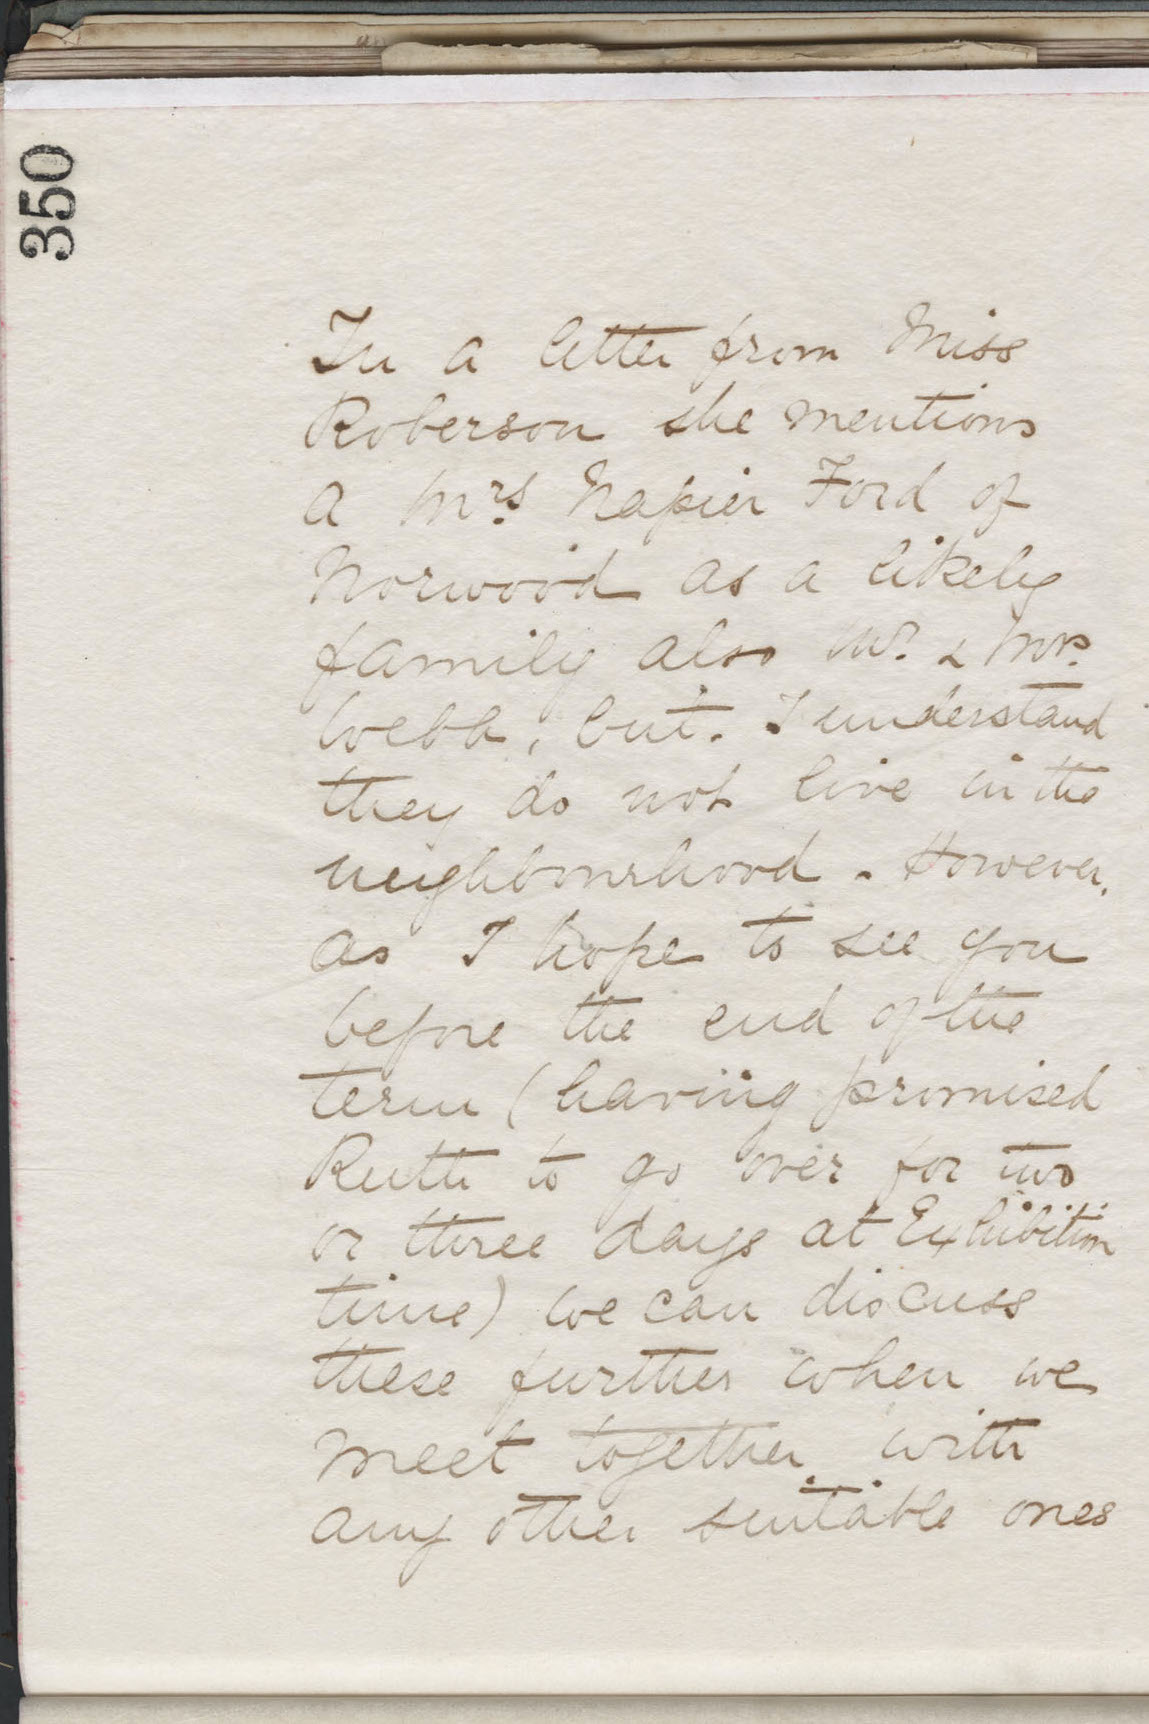 350
In a letter from Miss
Roberson she mentions
a Mrs. Napier Ford of
Norwood as a likely
family also Mr. & Mrs.
Webb, but. I understand
they do not live in the
neighbourhood. However,
as I hope to see you
before the end of the
term (having promised
Ruth to go over for two
or three days at Exhibition
time) we can discuss
these further when we
meet together with
any other suitable ones